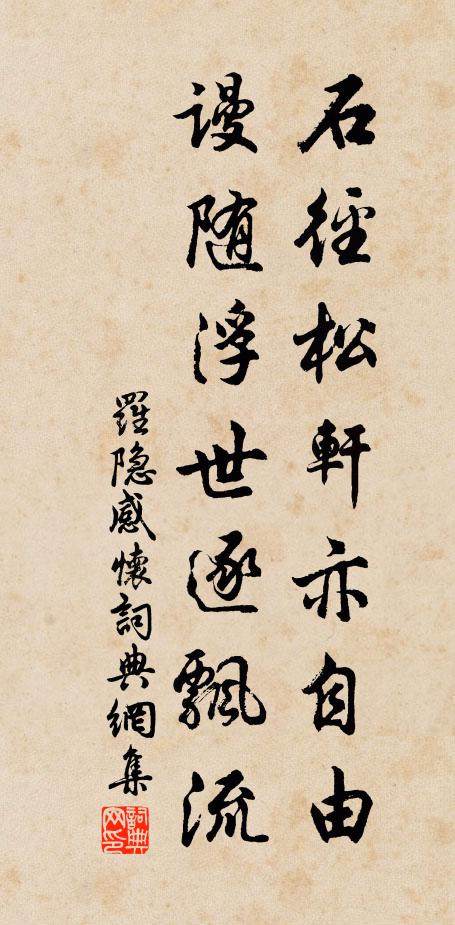 石徑松軒亦自由
謾随浮世逐飄流
羅隐感懷詞典網集
詞典网印